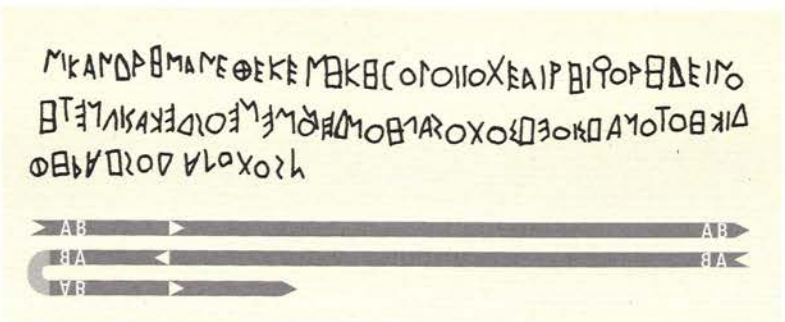 ΝΙΚΑΝΔΡΗΜΑΝΕΘΕΚΕΝΗΚΗΒΟΛΟΙΙΟΧΕΑΙΡΗΙϘΟΡΗΔΕΙΝΟ
ΔΙΚΗΟΤΟΝΑΗΣΙΟΕΗΣΟΧΟΣΑΛΗΟΝΔΕΙΝΟΜΕΝΕΟΣΔΕΚΑΣΙΓΝΕΤΗ
ΦΗΡΑΗΣΟΔΑΛΟΧΟΣΝ
AB AB
AB AB
AB